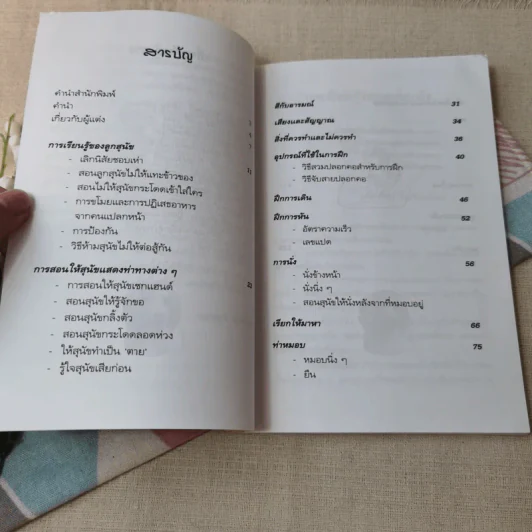 สารบัญ
คำนำสำนักพิมพ์
คำนำ
เกี่ยวกับผู้แต่ง
การเรียนรู้ของลูกสุนัข
- เลิกนิสัยชอบเห่า
- สอนลูกสุนัขไม่ให้แทะข้าวของ
- สอนไม่ให้สุนัขกระโดดเข้าใส่ใคร
- การขโมยและการปฏิเสธอาหาร
จากคนแปลกหน้า
- การป้องกัน
- วิธีห้ามสุนัขไม่ให้ต่อสู้กัน
การสอนให้สุนัขแสดงท่าทางต่าง ๆ
- การสอนให้สุนัขเชกแฮนด์
- สอนสุนัขให้รู้จักขอ
- สอนสุนัขกลิ้งตัว
- สอนสุนัขกระโดดลอดห่วง
- ให้สุนัขทำเป็น 'ตาย'
- รู้ใจสุนัขเสียก่อน
สีกับอารมณ์ 31
เสียงและสัญญาณ 34
สิ่งที่ควรทำและไม่ควรทำ 36
อุปกรณ์ที่ใช้ในการฝึก 40
- วิธีสวมปลอกคอสำหรับการฝึก
- วิธีจับสายปลอกคอ
ฝึกการเดิน 46
ฝึกการหัน 52
- อัตราความเร็ว
- เลขแปด
การนั่ง 56
- นั่งข้างหน้า
- นั่งนิ่ง ๆ
- สอนสุนัขให้นั่งหลังจากที่หมอบอยู่
เรียกให้มาหา 66
ท่าหมอบ 75
- หมอบนิ่ง ๆ
- ยืน